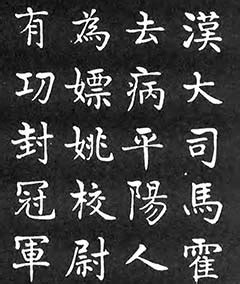 漢大司馬霍
去病平陽人
為嫖姚校尉
有功封冠軍